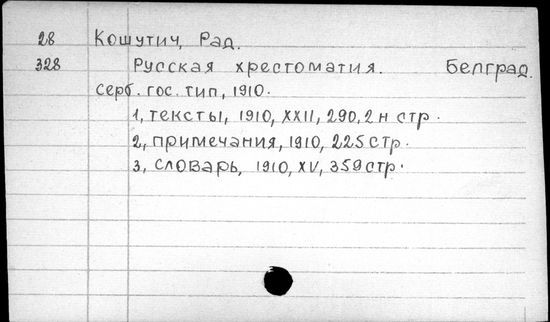 28 Кошутич, Рад.
328 Русская хрестоматия. Белград.
Серб. гос. тип, 1910.
1, тексты, 1910, XXII, 290, 2 н стр.
2, примечания, 1910, 225 стр.
3, словарь, 1910, XV, 359 стр.